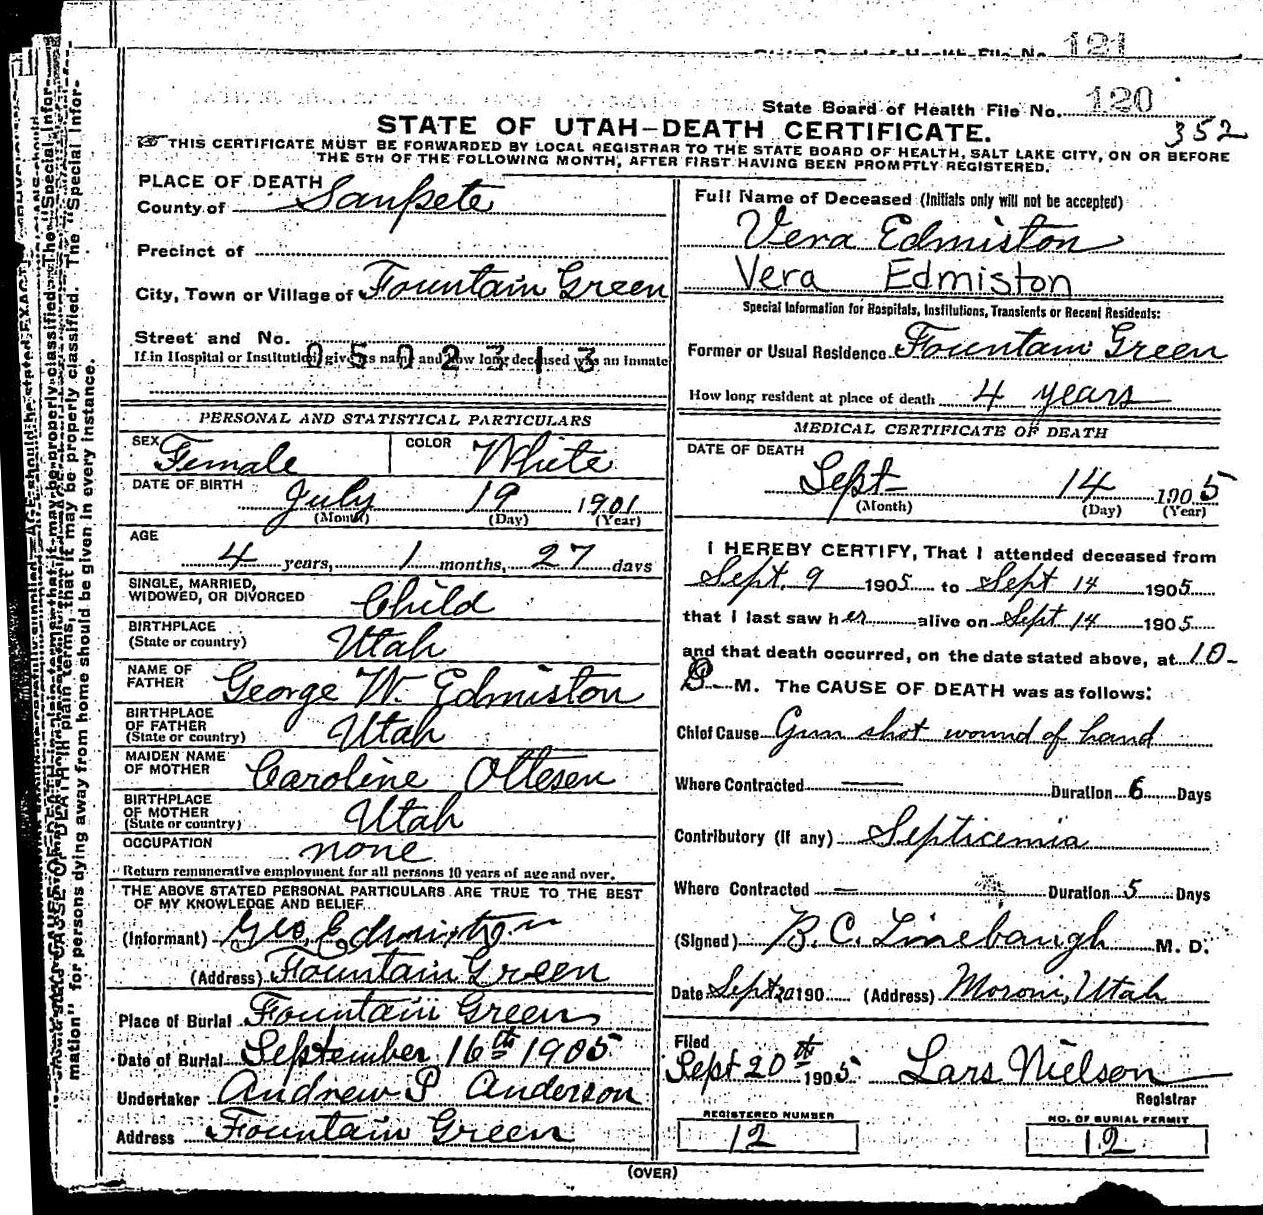 121
State Board of Health File No. 120
352
STATE OF UTAH—DEATH CERTIFICATE.
THIS CERTIFICATE MUST BE FORWARDED BY LOCAL REGISTRAR TO THE STATE BOARD OF HEALTH, SALT LAKE CITY, ON OR BEFORE
THE 5TH OF THE FOLLOWING MONTH, AFTER FIRST HAVING BEEN PROMPTLY REGISTERED.
PLACE OF DEATH
County of Sanpete
Precinct of
City, Town or Village of Fountain Green
Street and No.
0502313
If in Hospital or Institution, give its name and how long deceased was an inmate
PERSONAL AND STATISTICAL PARTICULARS
SEX Female COLOR White
DATE OF BIRTH
July 19 1901
(Month) (Day) (Year)
AGE
4 years, 1 months, 27 days
SINGLE, MARRIED,
WIDOWED, OR DIVORCED Child
BIRTHPLACE
(State or country) Utah
NAME OF
FATHER George W. Edmiston
BIRTHPLACE
OF FATHER
(State or country) Utah
MAIDEN NAME
OF MOTHER Caroline Ottesen
BIRTHPLACE
OF MOTHER
(State or country) Utah
OCCUPATION none
Return remunerative employment for all persons 10 years of age and over.
THE ABOVE STATED PERSONAL PARTICULARS ARE TRUE TO THE BEST
OF MY KNOWLEDGE AND BELIEF.
(Informant) Geo. Edmiston
(Address) Fountain Green
Place of Burial Fountain Green
Date of Burial September 16th 1905
Undertaker Andrew P Anderson
Address Fountain Green
Full Name of Deceased (Initials only will not be accepted)
Vera Edmiston
Vera Edmiston
Special Information for Hospitals, Institutions, Transients or Recent Residents:
Former or Usual Residence Fountain Green
How long resident at place of death 4 years
MEDICAL CERTIFICATE OF DEATH
DATE OF DEATH
Sept 14 1905
(Month) (Day) (Year)
I HEREBY CERTIFY, That I attended deceased from
Sept. 9 1905 to Sept 14 1905
that I last saw her alive on Sept 14 1905
and that death occurred, on the date stated above, at 10-
P. M. The CAUSE OF DEATH was as follows:
Chief Cause Gun shot wound of hand
Where Contracted — Duration 6 Days
Contributory (if any) Septicemia
Where Contracted — Duration 5 Days
(Signed) B. C. Linebaugh M. D.
Date Sept 20 190 (Address) Moroni, Utah
Filed
Sept 20th 1905 Lars Nielson
Registrar
REGISTERED NUMBER
12
NO. OF BURIAL PERMIT
12
(OVER)
mation" for persons dying away from home should be given in every instance.